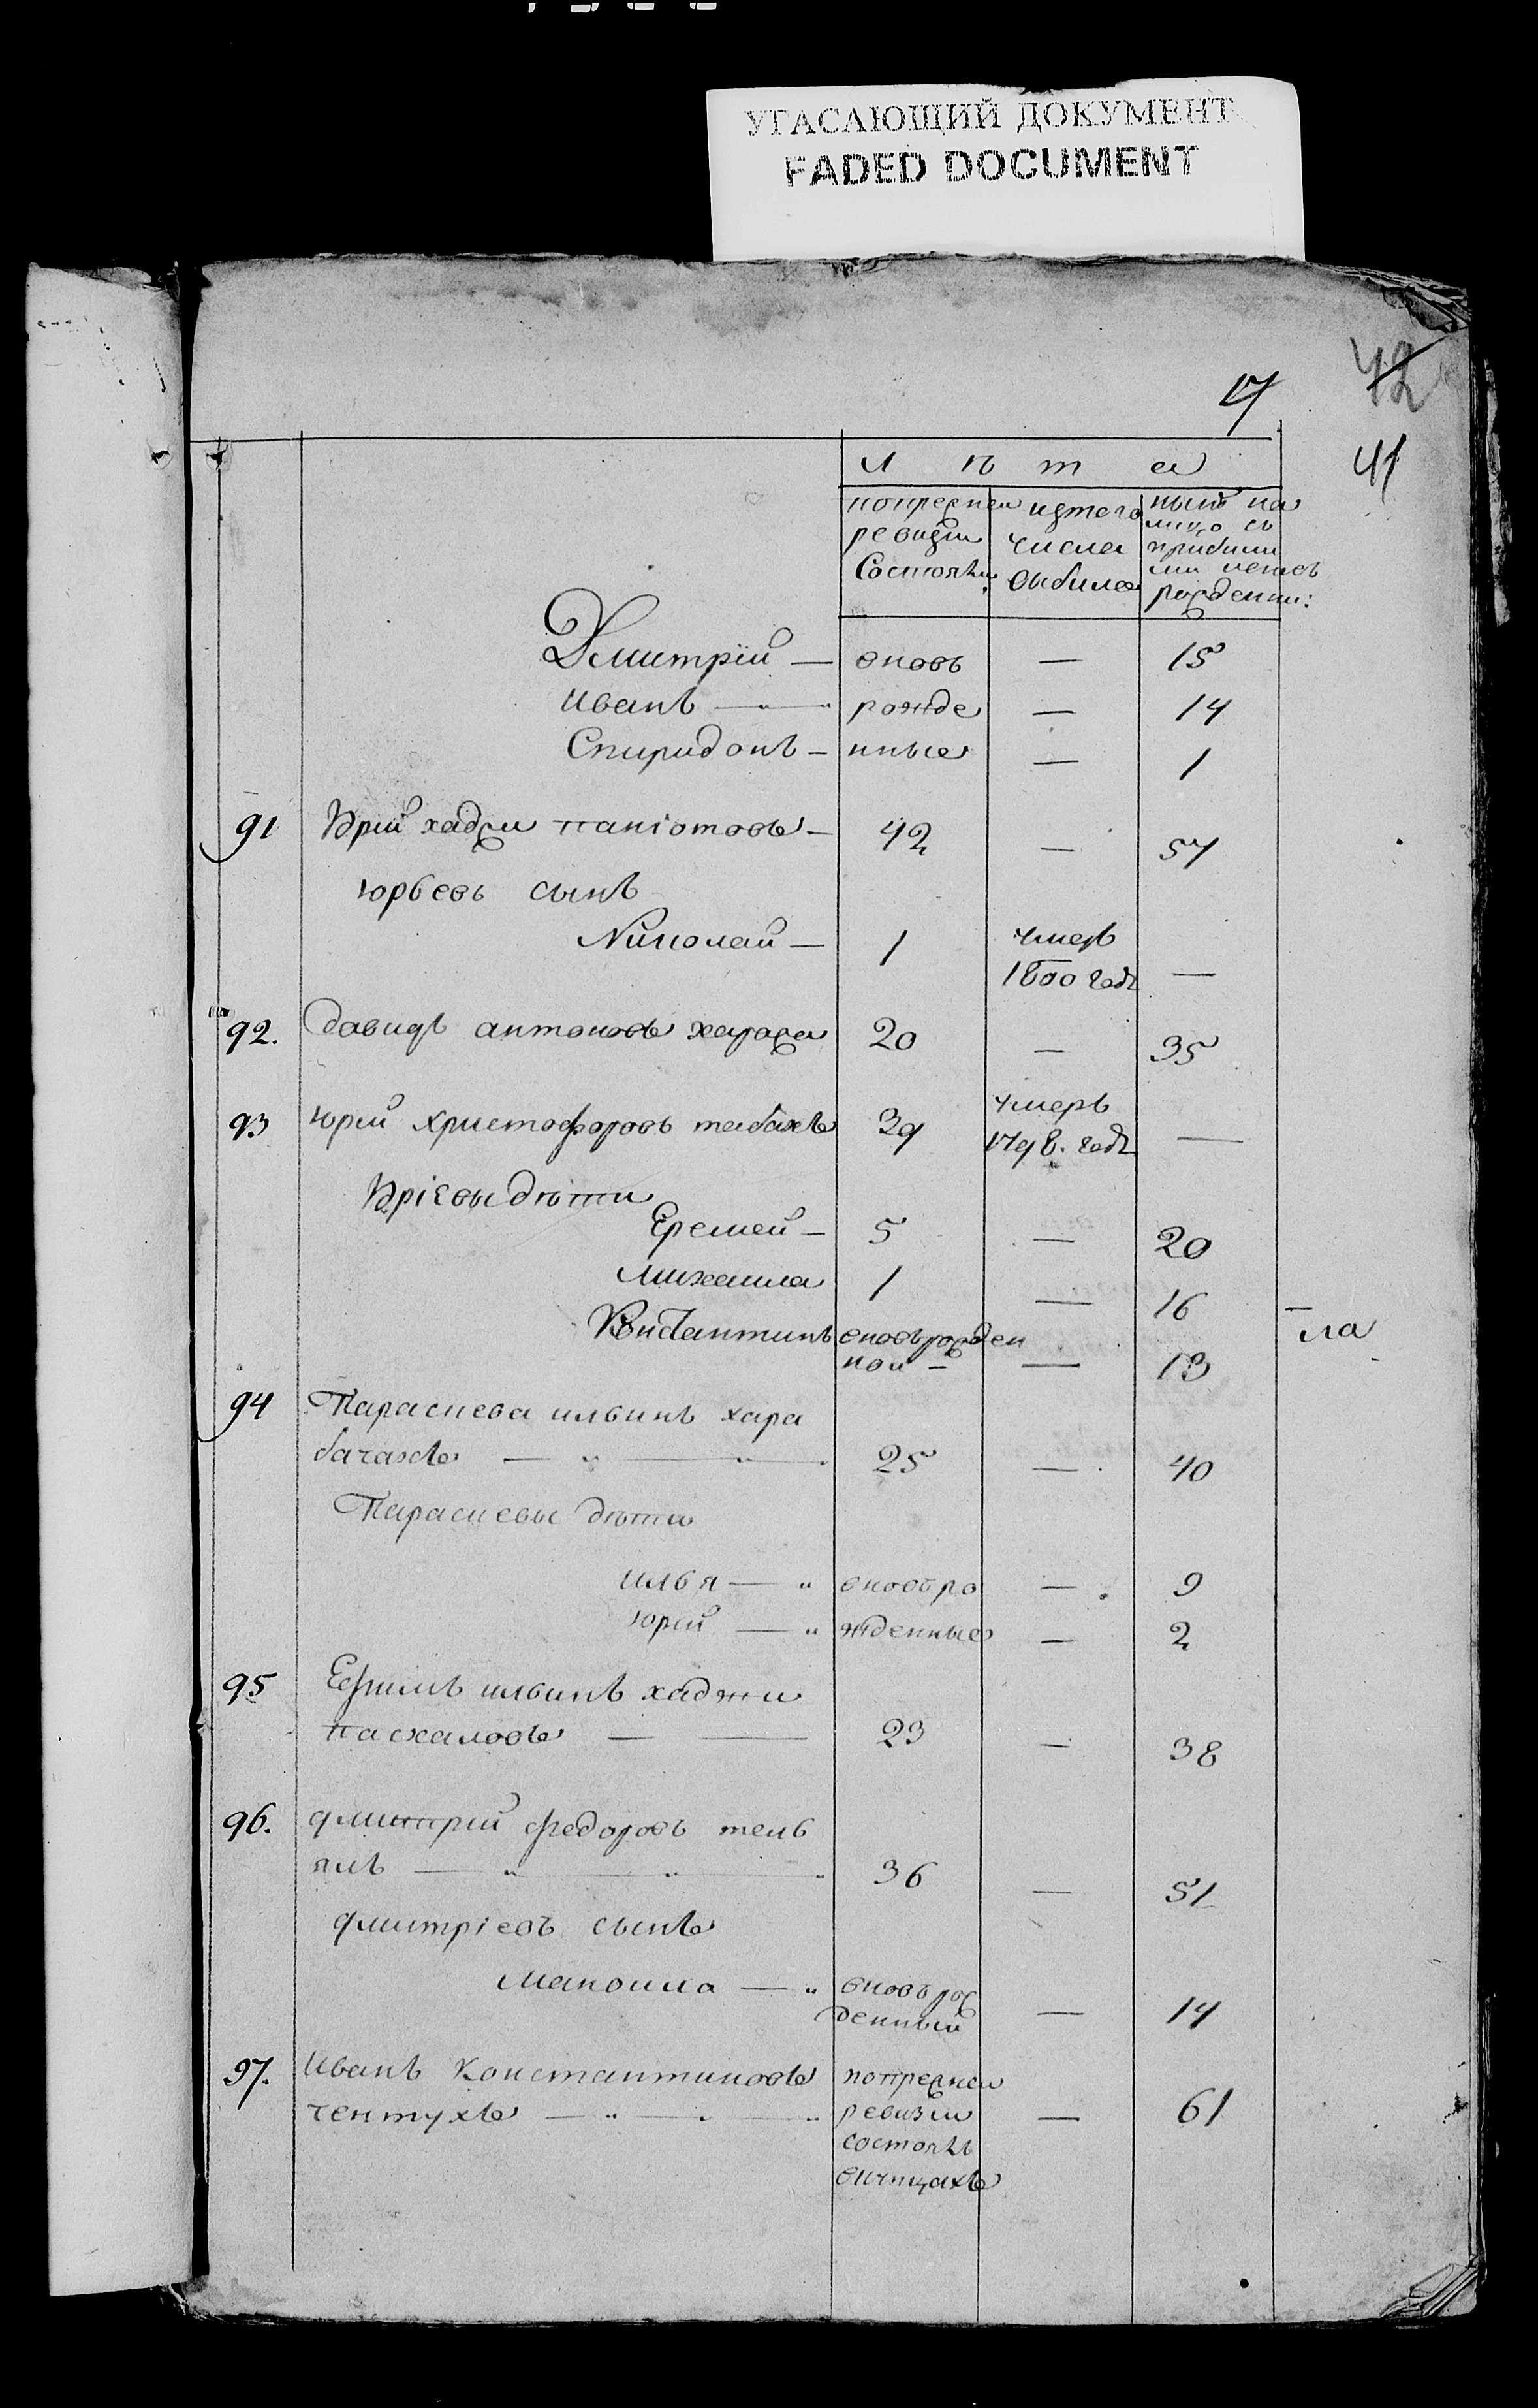 УГАСАЮЩИЙ ДОКУМЕНТ
FADED DOCUMENT
42
17
41
лѣта
попрежней ревизии Состояли
изтого числа выбило
ныне на лицо съ прибылыми и вновь рожденны:
Дмитрїй — вновь — 15
Иванъ — рожде — 14
Спиридонъ — нные — 1
91 Юрій хаджи панiотовъ — 42 — 57
юрьевъ сынъ
Николай — 1 умеръ 1800 годъ —
92. Давидъ антоновъ хараджи 20 — 35
93 юрий христофоровъ табахъ 39 умеръ 1798. годъ —
Юрiевы дѣти
Еремей — 5 — 20
Михаила 1 — 16
Константинъ вновьрожден ной — — 13
ла
94 Параскева ильинъ хара
бачахъ — 25 — 40
Параскевы дѣти
илья — вновьро — 9
юрий — жденные — 2
95 Ефимъ ильинъ хаджи
пасхаловъ — 23 — 38
96. дмитрий федоровъ тель
ямъ — 36 — 51
дмитрiевъ сынъ
Маноила — вновьрож денный — 14
97. Иванъ Константиновъ попрежней
чентухъ — ревизии — 61
состоялъ